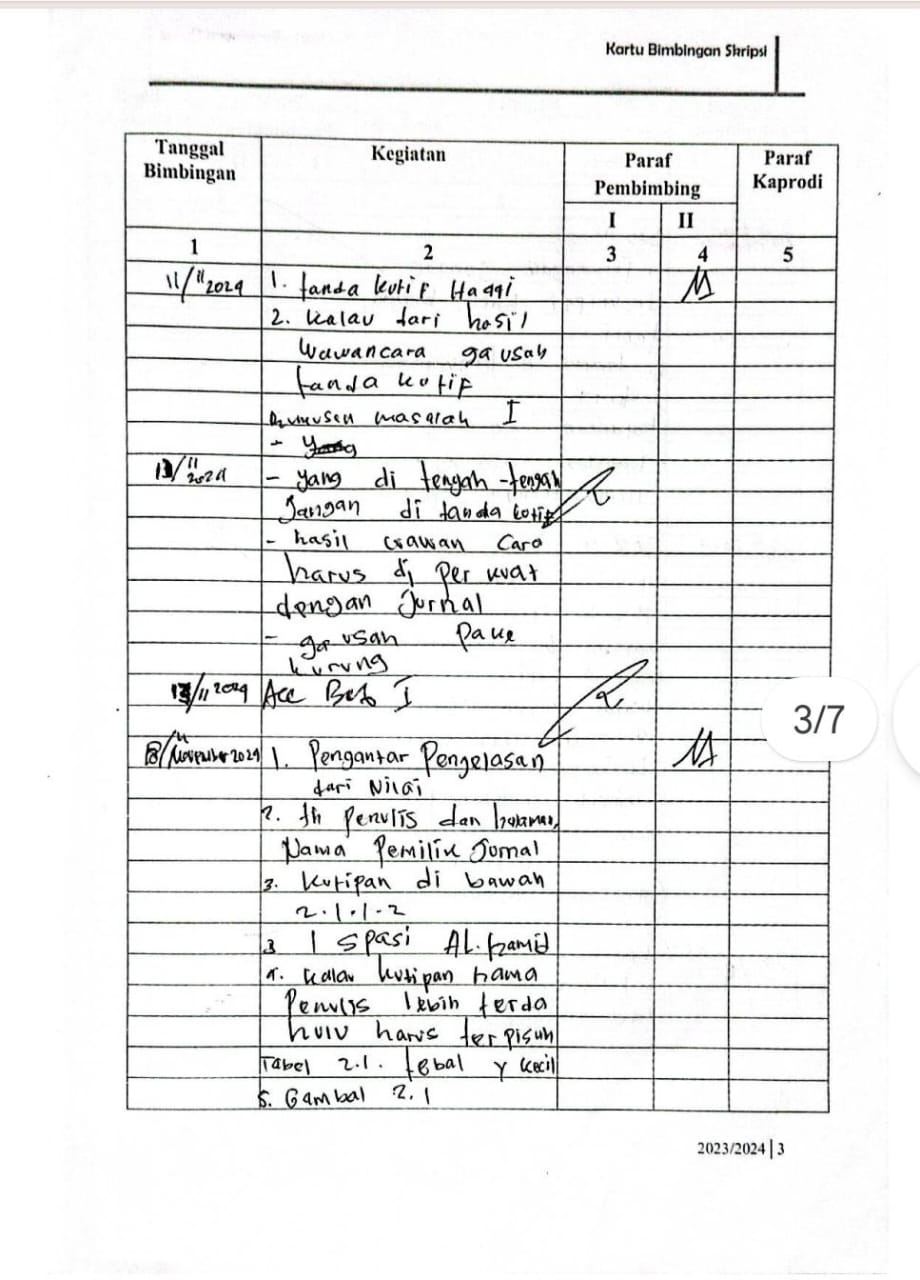 Kartu Bimbingan Skripsi
Tanggal Bimbingan
Kegiatan
Paraf Pembimbing
Paraf Kaprodi
I
II
1
2
3
4
5
11/11 2024
1. tanda kutip Haqqi
2. kalau dari hasil
wawancara ga usah
tanda kutip
Rumusan masalah I
13/11 2024
- yang di tengah-tengah
Jangan di tanda kutip
- hasil wawan cara
harus di per kuat
dengan Jurnal
- ga usah pake
kurung
13/11 2024
Acc Bab I
18/November 2024
1. Pengantar Penjelasan
dari Nilai
2. th Penulis dan halaman,
Nama Pemilik Jurnal
3. kutipan di bawah
2.1.1.2
3 1 spasi AL. Hamid
4. kalau kutipan nama
Penulis lebih terda
hulu harus terpisah
Tabel 2.1. tebal y kecil
5. Gambal 2.1
3/7
2023/2024 | 3